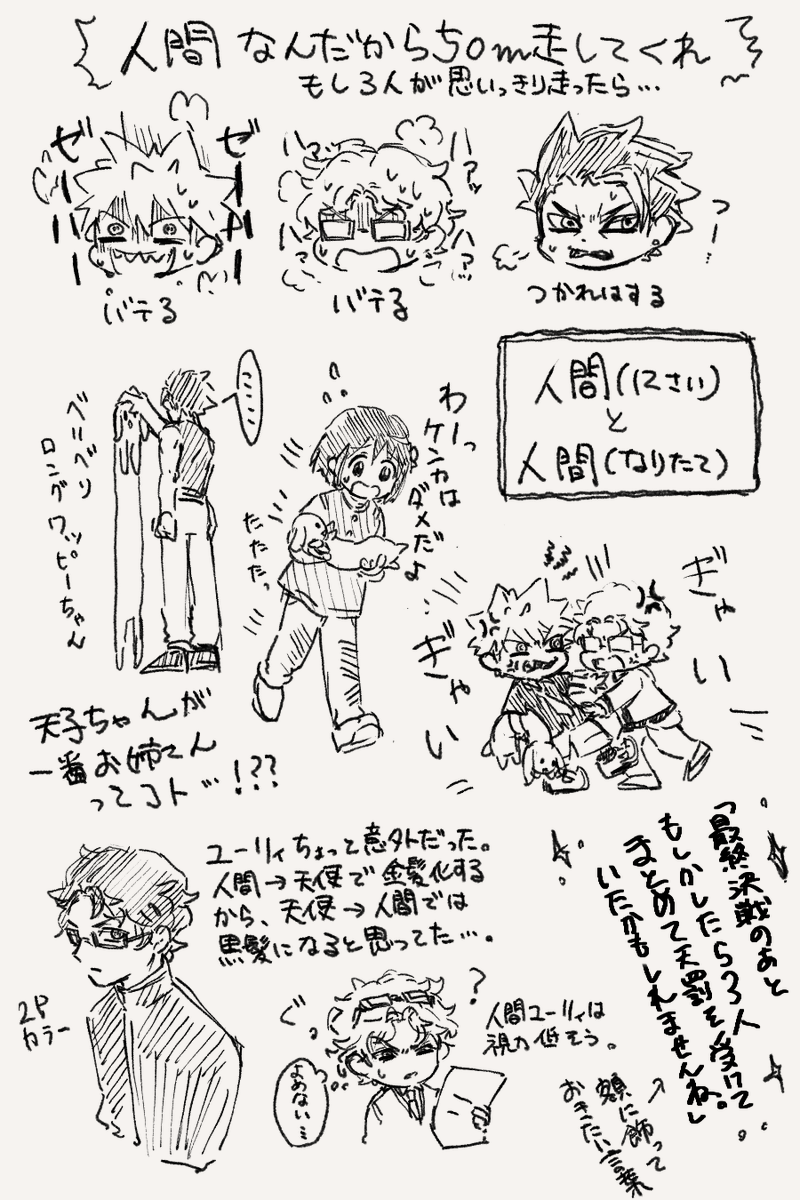 人間なんだから50m走してくれ
もし3人が思いっきり走ったら…
ゼーハー
ゼーハー
バテる
ハァッ
ハァッ
ハァッ
ハァッ
バテる
つー…
つかれはする
人間(にさい)
と
人間(なりたて)
ベリベリ
ロングワッピーちゃん
わーっ
ケンカは
ダメだよ
たたたっ
ぎゃい
ぎゃい
天子ちゃんが
一番お姉さん
ってコト…!??
ユーリィちょっと意外だった。
人間→天使で金髪化する
から、天使→人間では
黒髪になると思ってた…。
2P
カラー
ぐっ
?
よめない…
人間ユーリィは
視力低そう。
「最終決戦のあと
もしかしたら3人
まとめて天罰を受けて
いたかもしれませんね。」
額に飾って
おきたい言葉